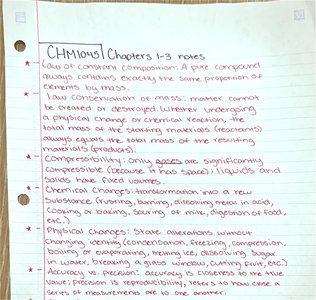 CHM1045 | Chapters 1-3 notes
* Law of constant composition: A pure compound
always contains exactly the same proportion of
elements by mass.
* law conservation of mass: matter cannot
be created or destroyed. Whether undergoing
a physical change or chemical reaction, the
total mass of the starting materials (reactants)
always equals the total mass of the resulting
materials (products).
* Compressibility: only gases are significantly
compressible (because it has space); liquids and
solids have fixed volumes.
* Chemical Changes: transformation into a new
substance (rusting, burning, dissolving metal in acid,
cooking or baking, souring of milk, digestion of food,
etc.)
* Physical Changes: State alterations without
changing identity (condensation, freezing, compression,
boiling or evaporating, melting ice, dissolving sugar
in water, breaking a glass window, cutting fruit, etc.)
* Accuracy vs. precision: accuracy is closeness to the true
value; precision is reproducibility, refers to how close a
series of measurements are to one another.